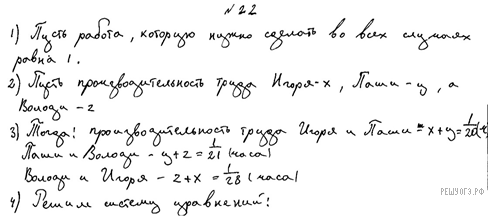 №22
1) Пусть работа, которую нужно сделать во всех случаях
равна 1.
2) Пусть производительность труда Игоря-x, Паши-y, а
Володи-z
3) Тогда! производительность труда Игоря и Паши - x+y=1/20(ч)
Паши и Володи - y+z=1/21 (часа)
Володи и Игоря - z+x=1/28 (часа)
4) Решим систему уравнений!
РЕШУОГЭ.РФ